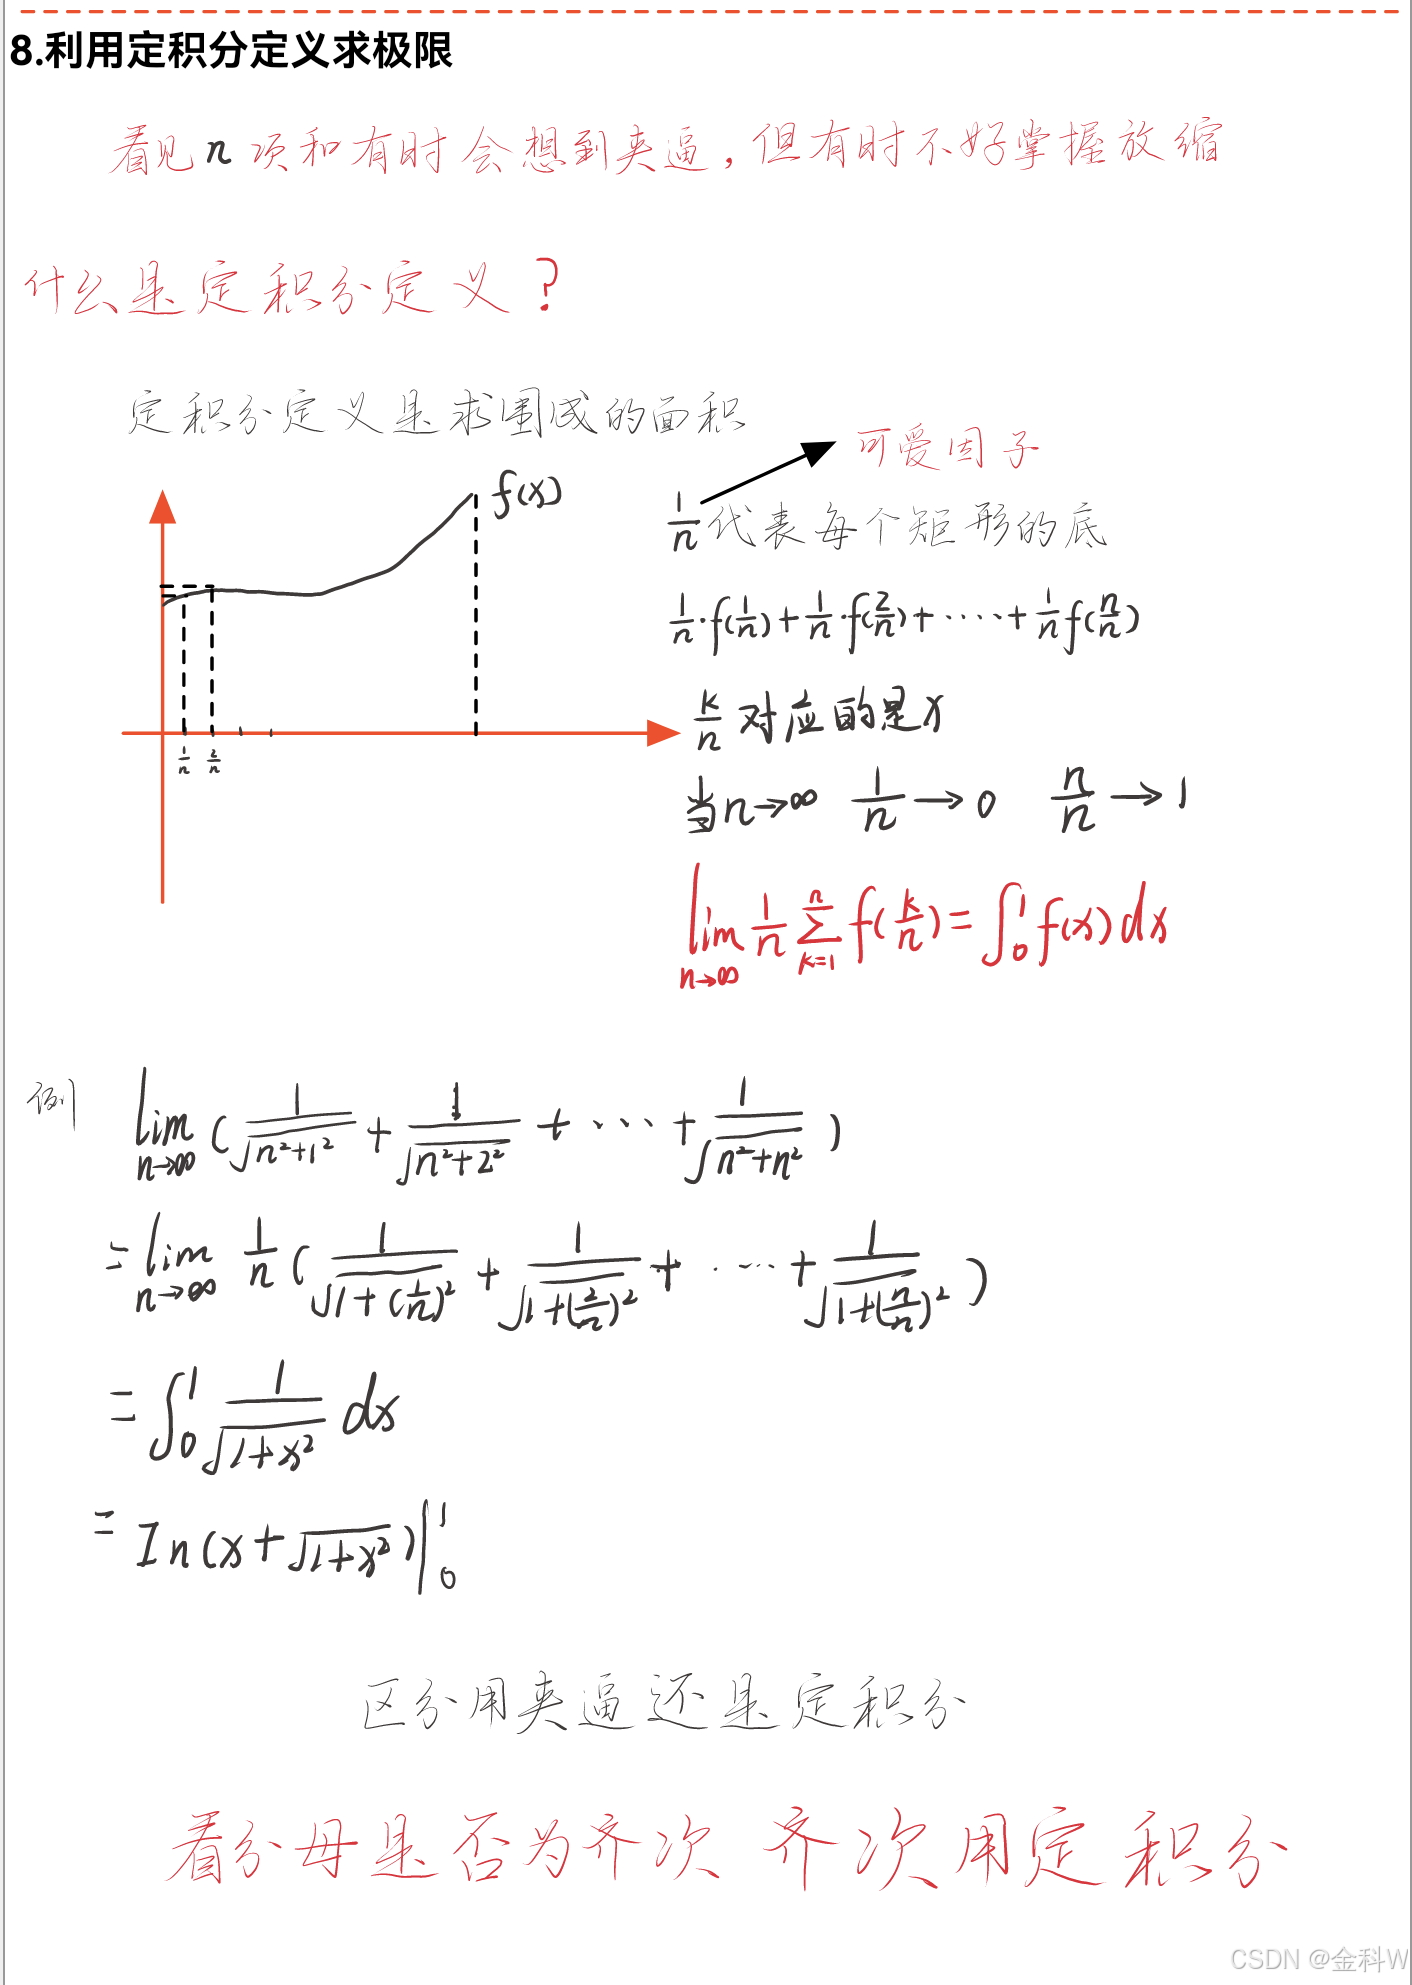 8.利用定积分定义求极限
看见n项和有时会想到夹逼,但有时不好掌握放缩
什么是定积分定义?
定积分定义是求围成的面积
f(x)
1/n 2/n
可爱因子
1/n 代表每个矩形的底
1/n·f(1/n)+1/n·f(2/n)+·····+1/n f(n/n)
k/n 对应的是x
当n→∞ 1/n→0 n/n→1
lim n→∞ 1/n ∑ k=1 n f(k/n)=∫₀¹f(x)dx
例 lim n→∞ (1/√(n²+1²)+1/√(n²+2²)+····+1/√(n²+n²))
=lim n→∞ 1/n(1/√(1+(1/n)²)+1/√(1+(2/n)²)+····+1/√(1+(n/n)²))
=∫₀¹ 1/√(1+x²) dx
=In(x+√(1+x²))|₀¹
区分用夹逼还是定积分
看分母是否为齐次 齐次用定积分
CSDN @金科W